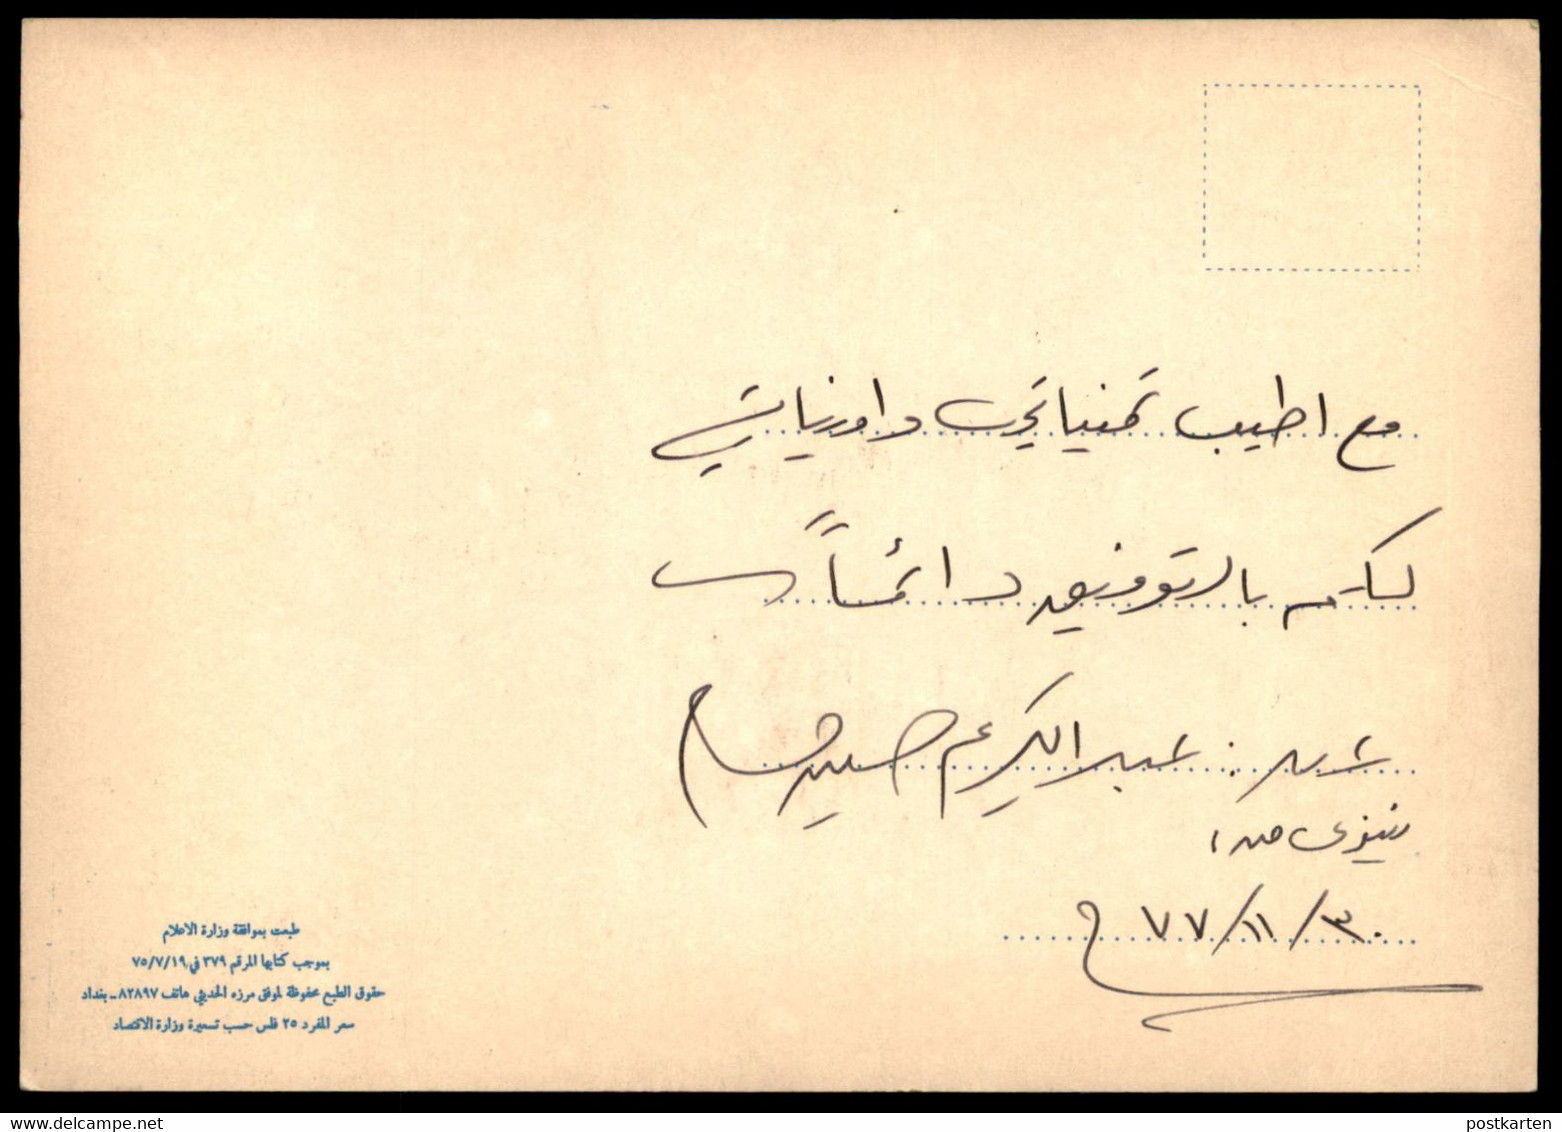 مع اطيب تمنياتي
لكم بالتوفيق دائماً
عبد الكريم
نينوى
٧٧/١١/٣٠
طبعت بموافقة وزارة الاعلام
بموجب كتابها المرقم ٣٧٩ في ٧٥/٧/١٩
حقوق الطبع محفوظة لموفق مرزه الحديثي هاتف ٨٢٨٩٧ - بغداد
سعر المفرد ٢٥ فلس حسب تسعيرة وزارة الاقتصاد
www.delcampe.net
postkarten